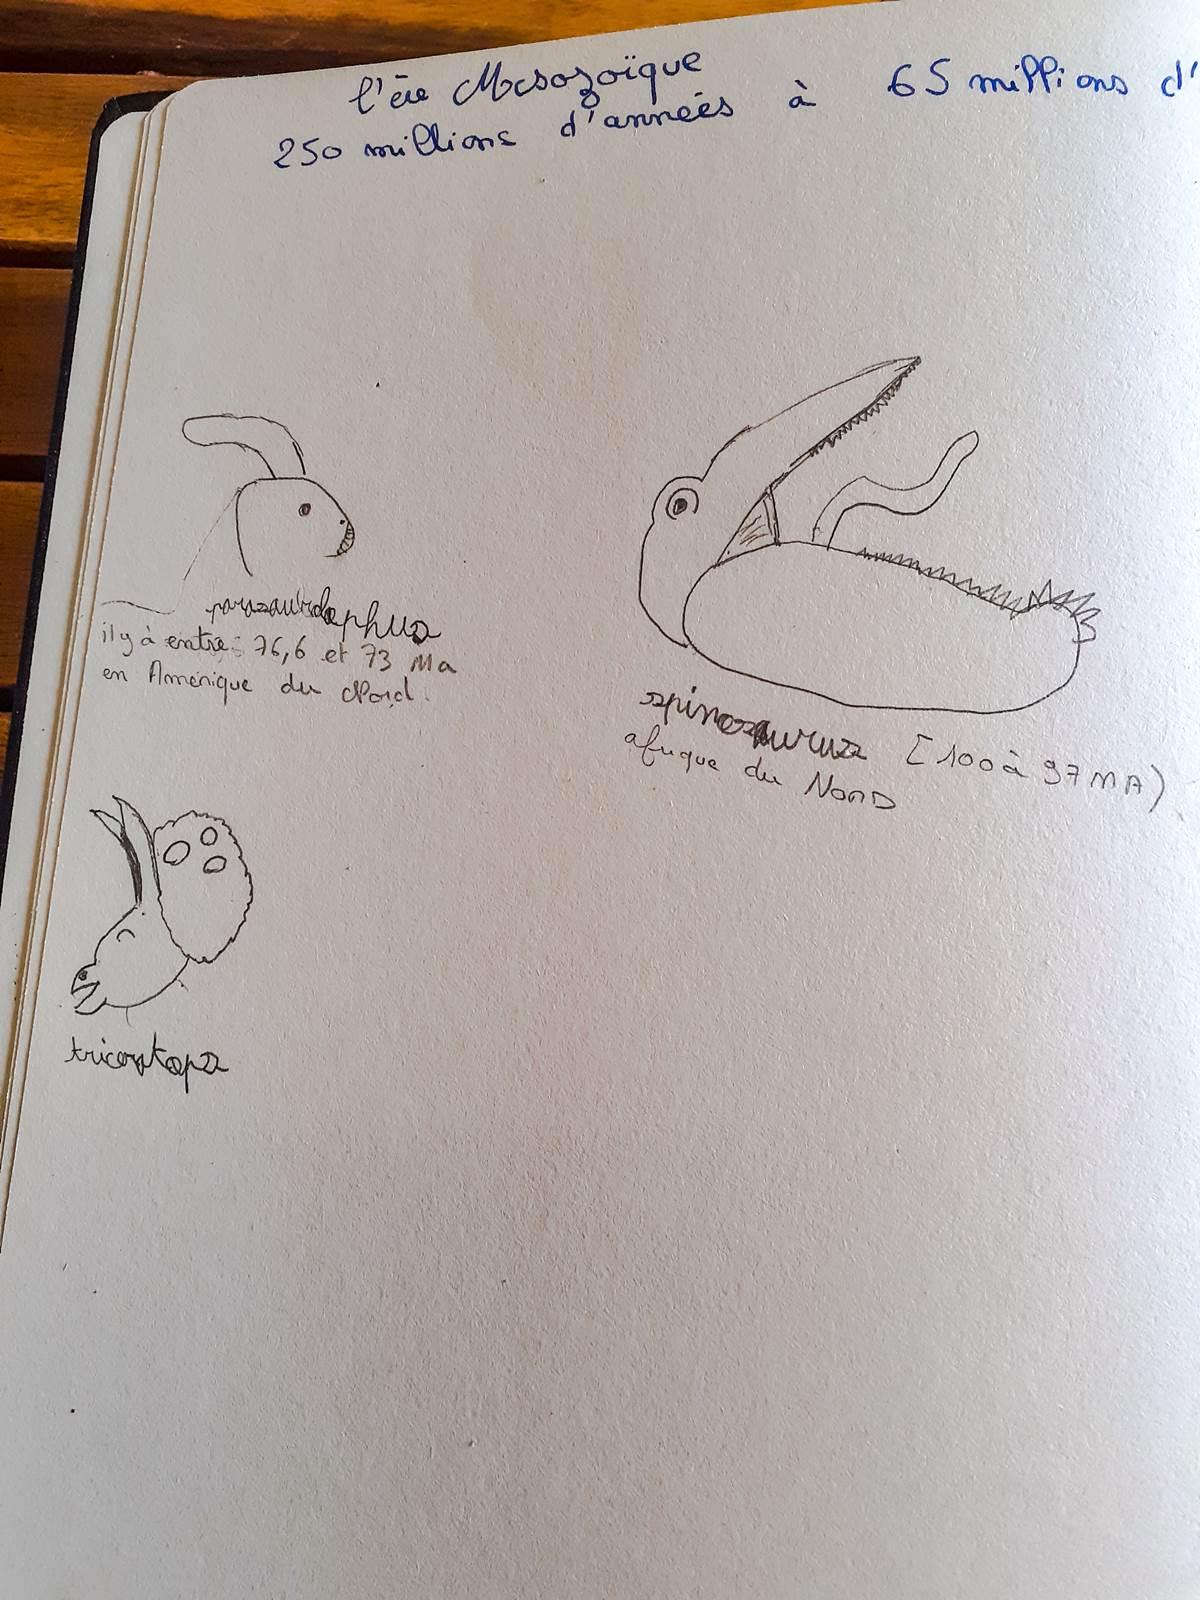 l'ère Mesozoïque
250 millions d'années à 65 millions d'
parasaurolophus
il y à entre 76,6 et 73 Ma
en Amérique du Nord.
spinosaurus [100 à 97 MA)
afrique du NORD
tricératops